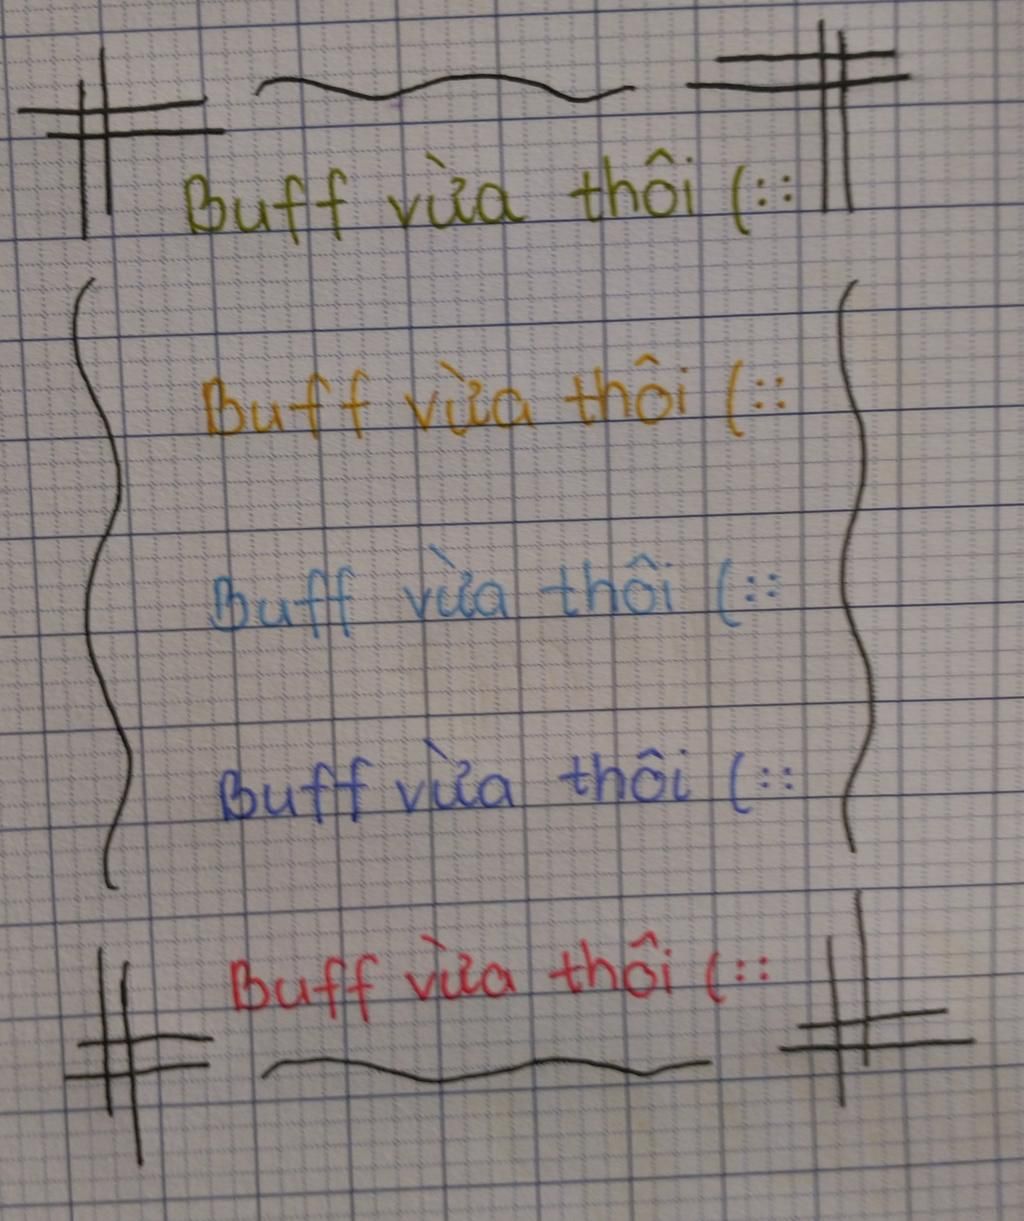 Buff vừa thôi (::
Buff vừa thôi (::
Buff vừa thôi (::
Buff vừa thôi (::
Buff vừa thôi (::